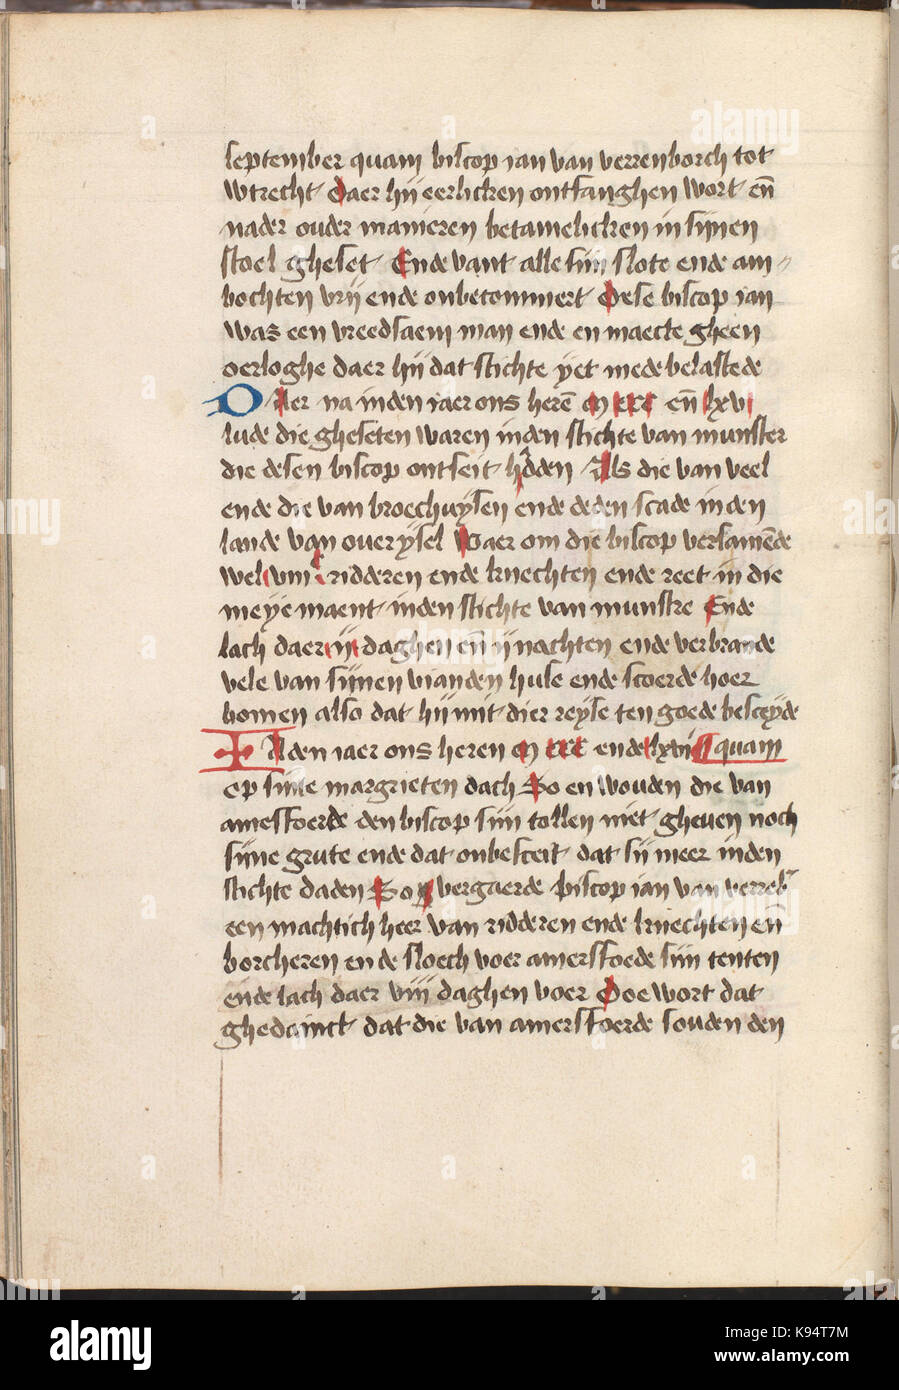 september quam biscop ian van verrenborch tot
wtrecht Daer hij eerlicken ontfanghen wort en̄
nader ouder manieren betamelicken in sijnen
stoel gheset Ende vant alle sijn slote ende am⸗
bochten vrij ende onbecommert Dese biscop ian
was een vreedsaem man ende en maecte gheen
oerloghe daer hij dat stichte yet mede belastede
DAer na inden iaer ons herē M CCC en̄ lxvi
lude die gheseten waren inden stichte van munster
die desen biscop ontseit hadden Als die van veel
ende die van broechuysen ende deden scade in den
lande van ouerysel Daer om die biscop versamēde
wel viiiᶜ ridderen ende knechten ende reet in die
meye maent inden stichte van munstre Ende
lach daer ij daghen en̄ ij nachten ende verbrande
vele van sijnen vianden huse ende stoerde hoer
bomen also dat hij mit dier reyse ten goede besceyde
INden iaer ons heren M CCC ende lxvii quam
op sinte margrieten dach So en wouden die van
amersfoerde den biscop sijn tollen niet gheuen noch
sijne grute ende dat onbesceit dat sij meer inden
stichte daden So vergaerde biscop ian van verreb
een machtich heer van ridderen ende knechten en̄
borcheren ende sloech voer amersfoede sijn tenten
ende lach daer viii daghen voer Doe wort dat
ghedainct dat die van amersfoerde souden den
alamy
K94T7M
www.alamy.com